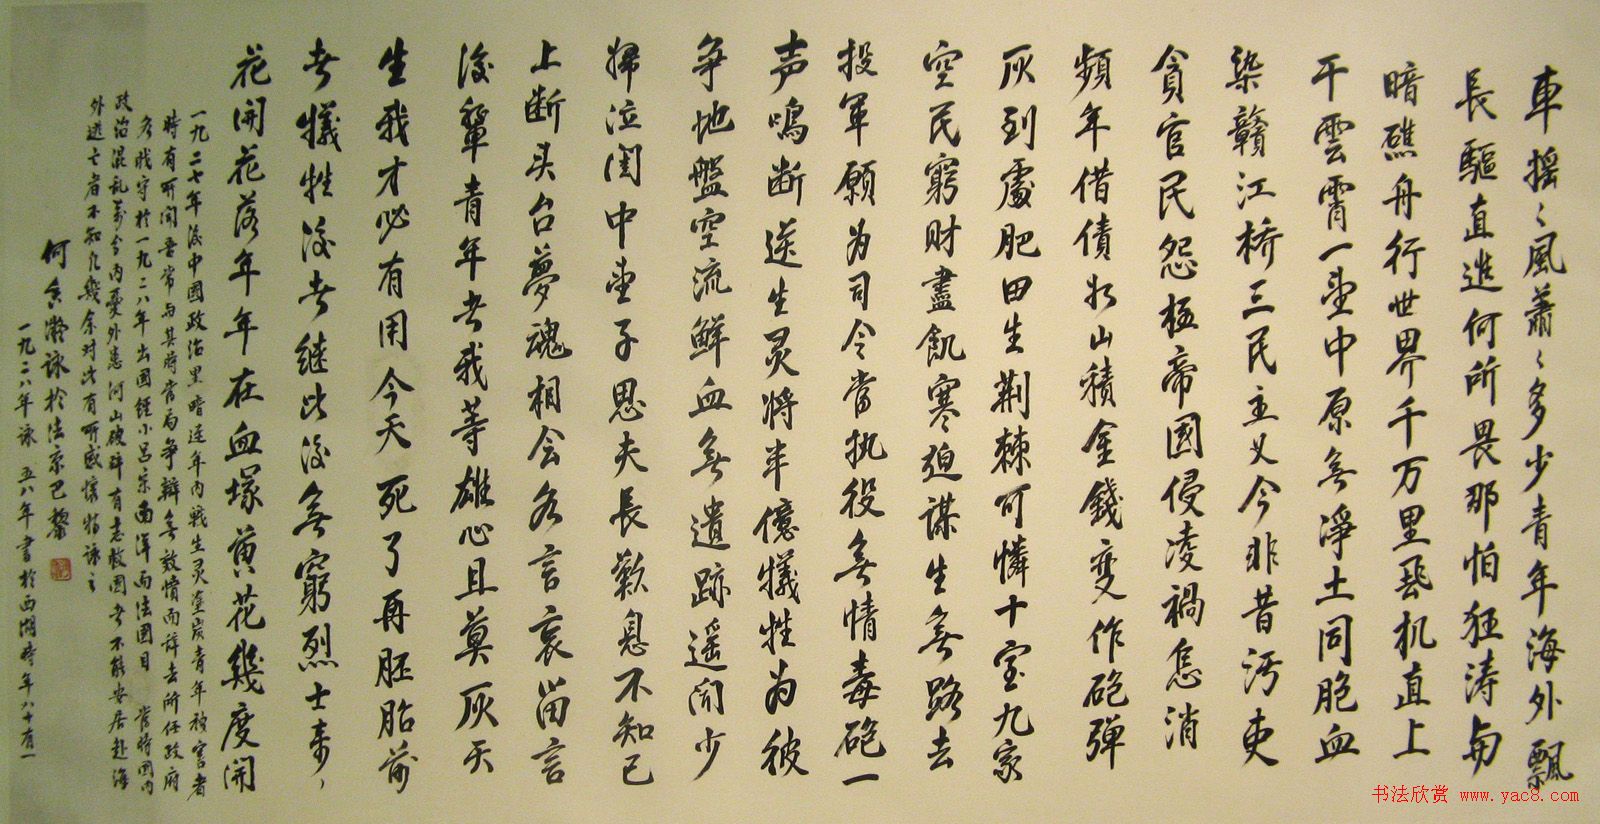 車摇々風蕭々多少青年海外飄
長驅直進何所畏那怕狂涛与
暗礁舟行世界千万里飛机直上
干雲霄一望中原無淨土同胞血
染贛江橋三民主义今非昔污吏
貪官民怨極帝國侵凌禍怎消
頻年借債如山積金錢变作砲弹
灰到處肥田生荆棘可憐十室九家
空民窮財盡飢寒迫謀生無路去
投軍願为司令當执役無情毒砲一
声鳴断送生灵将半億犠牲为彼
争地盤空流鮮血無遺跡遥闻少
婦泣闺中望子思夫長歎息不知已
上断头台夢魂相会各言哀留言
後輩青年者我等雄心且莫灰天
生我才必有用今天死了再胚胎前
者犠牲後者继此後無窮烈士来々
花開花落年年在血塚黄花幾度開
一九二七年後中國政治黑暗連年内戰生灵塗炭青年被害者
時有所闻吾常与其時当局争辯無效憤而辞去所任政府
各職守於一九二八年出國經小吕宋南洋而法國目 当時国内
政治混乱万分内憂外患河山破碎有志救国者不能安居赴海
外逃亡者不知凡幾余对此有所感懷特詠之
何香凝詠於法京巴黎
一九二八年詠 五八年書於西湖時年八十有一
书法欣赏 www.yac8.com